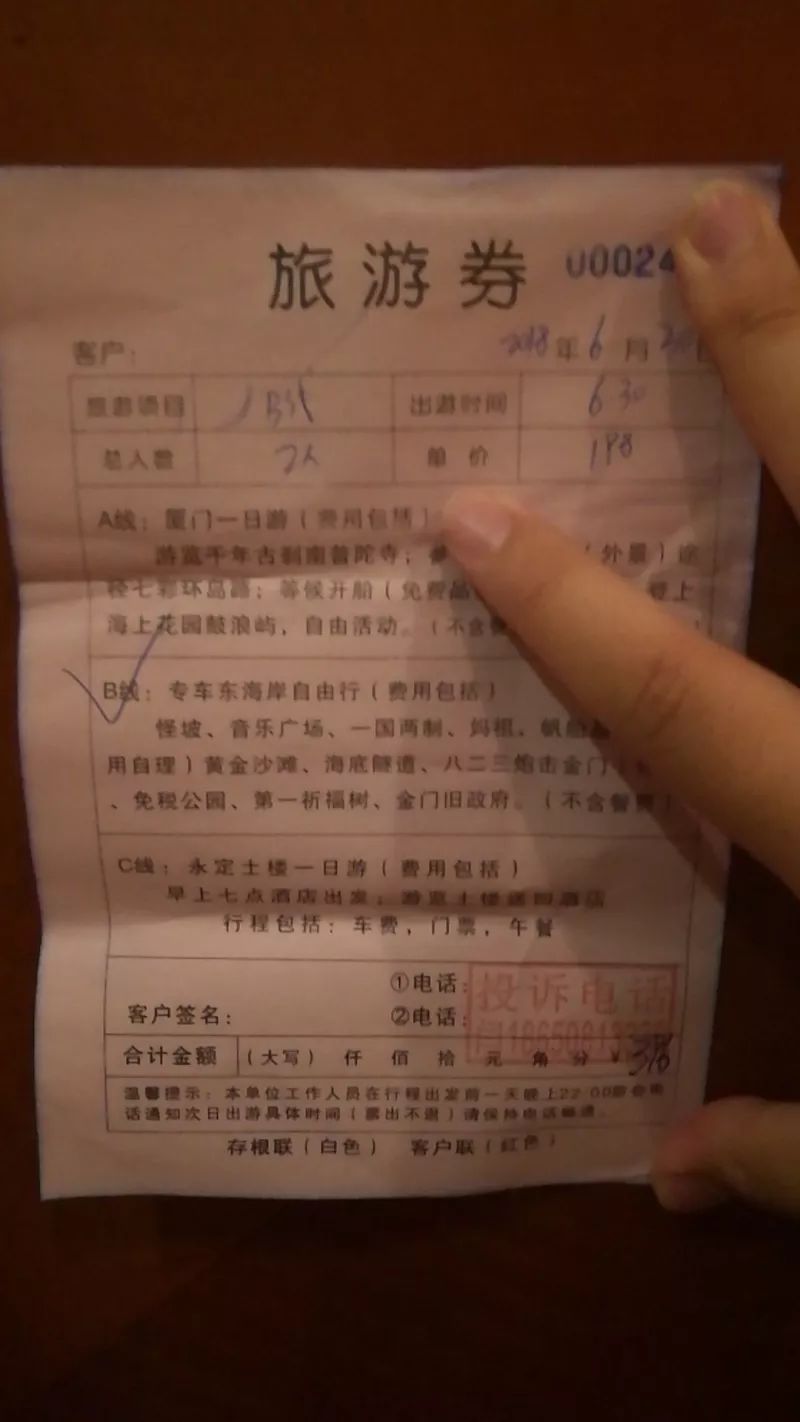 旅游券 00024
客户： 2018年6月
旅游项目 B线 出游时间 6 30
总人数 2人 单价 198
A线：厦门一日游（费用包括）
游览千年古刹南普陀寺；（外景）途
经七彩环岛路；等候开船（免费品 登上
海上花园鼓浪屿，自由活动。（不含餐 ）
B线：专车东海岸自由行（费用包括）
怪坡、音乐广场、一国两制、妈祖、帆船
用自理）黄金沙滩、海底隧道、八二三炮击金门
、免税公园、第一祈福树、金门旧政府。（不含餐费）
C线：永定土楼一日游（费用包括）
早上七点酒店出发；游览土楼送回酒店
行程包括：车费，门票，午餐
①电话：
客户签名： ②电话：
投诉电话
合计金额 （大写） 仟 佰 拾 元 角 分 ¥
温馨提示：本单位工作人员在行程出发前一天晚上22:00前会电
话通知次日出游具体时间（票出不退）请保持电话畅通。
存根联（白色） 客户联（红色）